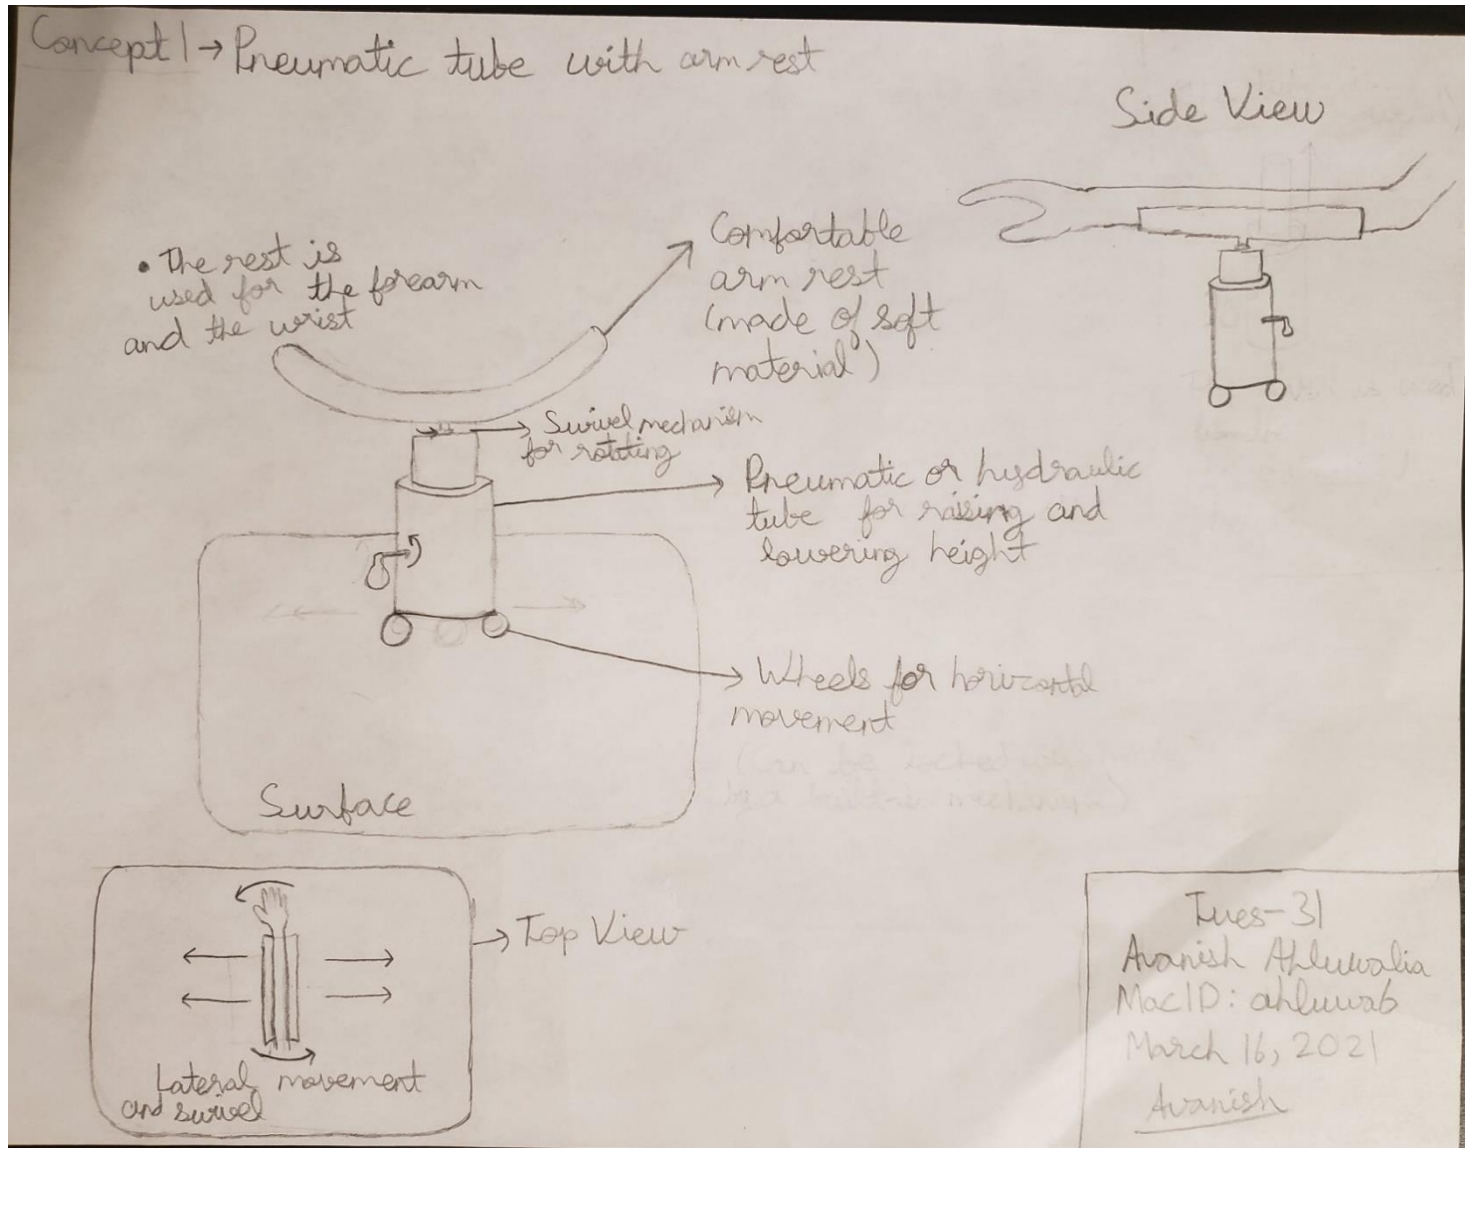 Concept 1 → Pneumatic tube with arm rest
Side View
• The rest is
used for the forearm
and the wrist
Comfortable
arm rest
(made of soft
material)
Swivel mechanism
for rotating
Pneumatic or hydraulic
tube for raising and
lowering height
Wheels for horizontal
movement
Surface
Top View
Lateral movement
and swivel
Tues-31
Avanish Ahluwalia
MacID: ahluwab
March 16, 2021
Avanish